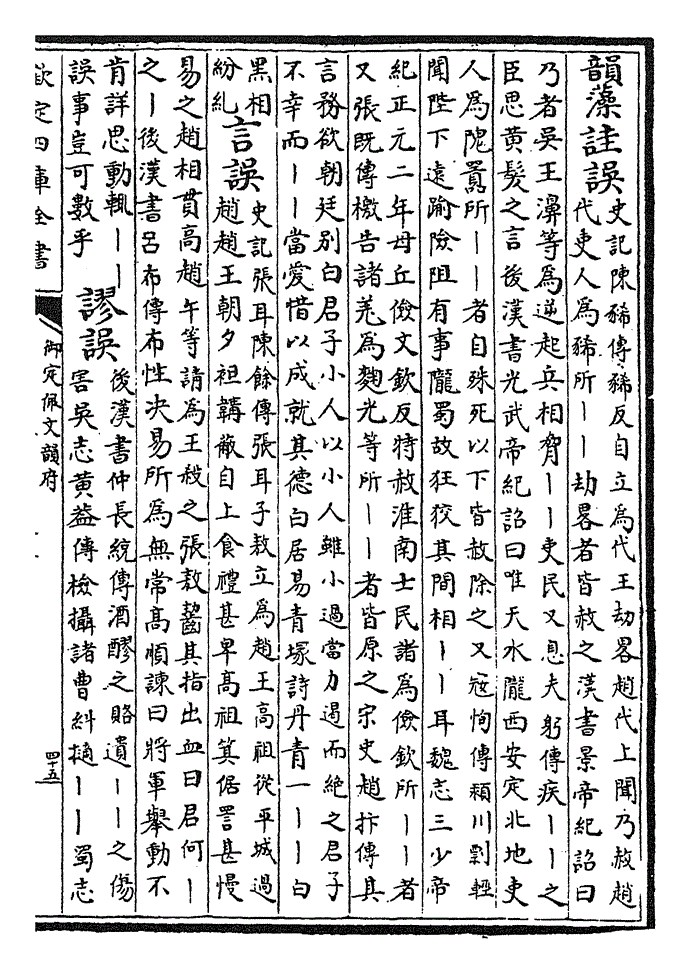 韻藻詿誤史記陳豨傳豨反自立為代王劫畧趙代上聞乃赦趙
代吏人為豨所丨丨劫畧者皆赦之漢書景帝紀詔曰
乃者吳王濞等為逆起兵相脅丨丨吏民又息夫躬傳疾丨丨之
臣思黃髮之言後漢書光武帝紀詔曰唯天水隴西安定北地吏
人為隗囂所丨丨者自殊死以下皆赦除之又冦恂傳潁川剽輕
聞陛下遠踰險阻有事隴蜀故狂狡其間相丨丨耳魏志三少帝
紀正元二年母丘儉文欽反特赦淮南士民諸為儉欽所丨丨者
又張既傳檄告諸羌為麴光等所丨丨者皆原之宗史趙抃傳其
言務欲朝廷別白君子小人以小人雖小過當力遏而絶之君子
不幸而丨丨當愛惜以成就其德白居易青塚詩丹青一丨丨白
黑相
紛糺言誤史記張耳陳餘傳張耳子敖立為趙王高祖從平城過
趙趙王朝夕袒韝蔽自上食禮甚卑高祖箕倨詈甚慢
易之趙相貫高趙午等請為王殺之張敖齧其指出血曰君何丨
之丨後漢書呂布傳布性决易所為無常高順諫曰將軍舉動不
肯詳思動輒丨丨
誤事豈可數乎 謬誤後漢書仲長統傳酒醪之賂遺丨丨之傷
害吳志黃葢傳檢攝諸曹糾擿丨丨蜀志
欽定四庫全書
御定佩文韻府
四十五